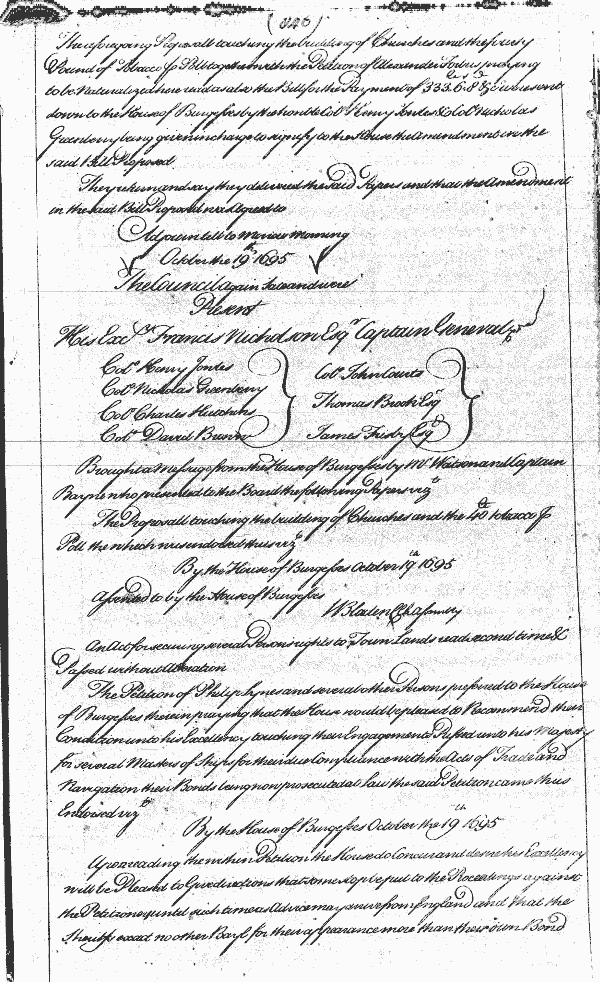 (846)
The aforegoing Proposall touching the building of Churches and the fourty
Pound of Tobacco p Poll together with the Petition of Alexander praying
to be Naturalized here as also the Bill for the Payment of 333. 6. 8 &c were sent
down to the House of Burgesses by the honble Colo Henry Jowles & Colo Nicholas
Greenberry being given in charge to signify to the House the Amendment in the
said Bill Proposed
They return and say they delivered the said Papers and that the Amendment
in the said Bill Proposed was Agreed to
Adjourn'd till to Morrow Morning
October the 19th 1695
The Council again Sate and were
Present
His Excy Francis Nicholson Esqr Captain General &c
Colo Henry Jowles
Colo John Courts
Colo Nicholas Greenberry
Thomas Brooke Esqr
Colo Charles Hutchins
Colo David Browne
James Frisby Esqr
Brought a Message from the House of Burgesses by Mr Watson and Captain
Bayne who presented to the Board the following Papers vizt
The Proposall touching the building of Churches and the 40th tobacco p
Poll the which was endorsed thus vizt
By the House of Burgesses October 19th 1695
Assented to by the House of Burgesses
W Bladen Cl Assembly
An Act for securing severall Persons rights to Town Lands read second time &
Passed without Alteration
The Petition of Philip Lynes and several other Persons preferred to the House
of Burgesses therein praying that the House would be pleased to Recommend their
Condition unto his Excellency touching their Engagements Passed unto his Majesty
for several Masters of Ships for their due Compliance with the Acts of Trade and
Navigation their Bonds being now prosecuted at Law the said Petition came thus
Endorsed vizt
By the House of Burgesses October the 19th 1695
Upon reading the within Petition the House do Concur and desire his Excellency
will be Pleased to Give directions that some stop be put to the Proceedings against
the Petitioners until such time as Advice may arrive from England and that the
Sheriffs exact no other Bayl for their appearance more than their own Bond